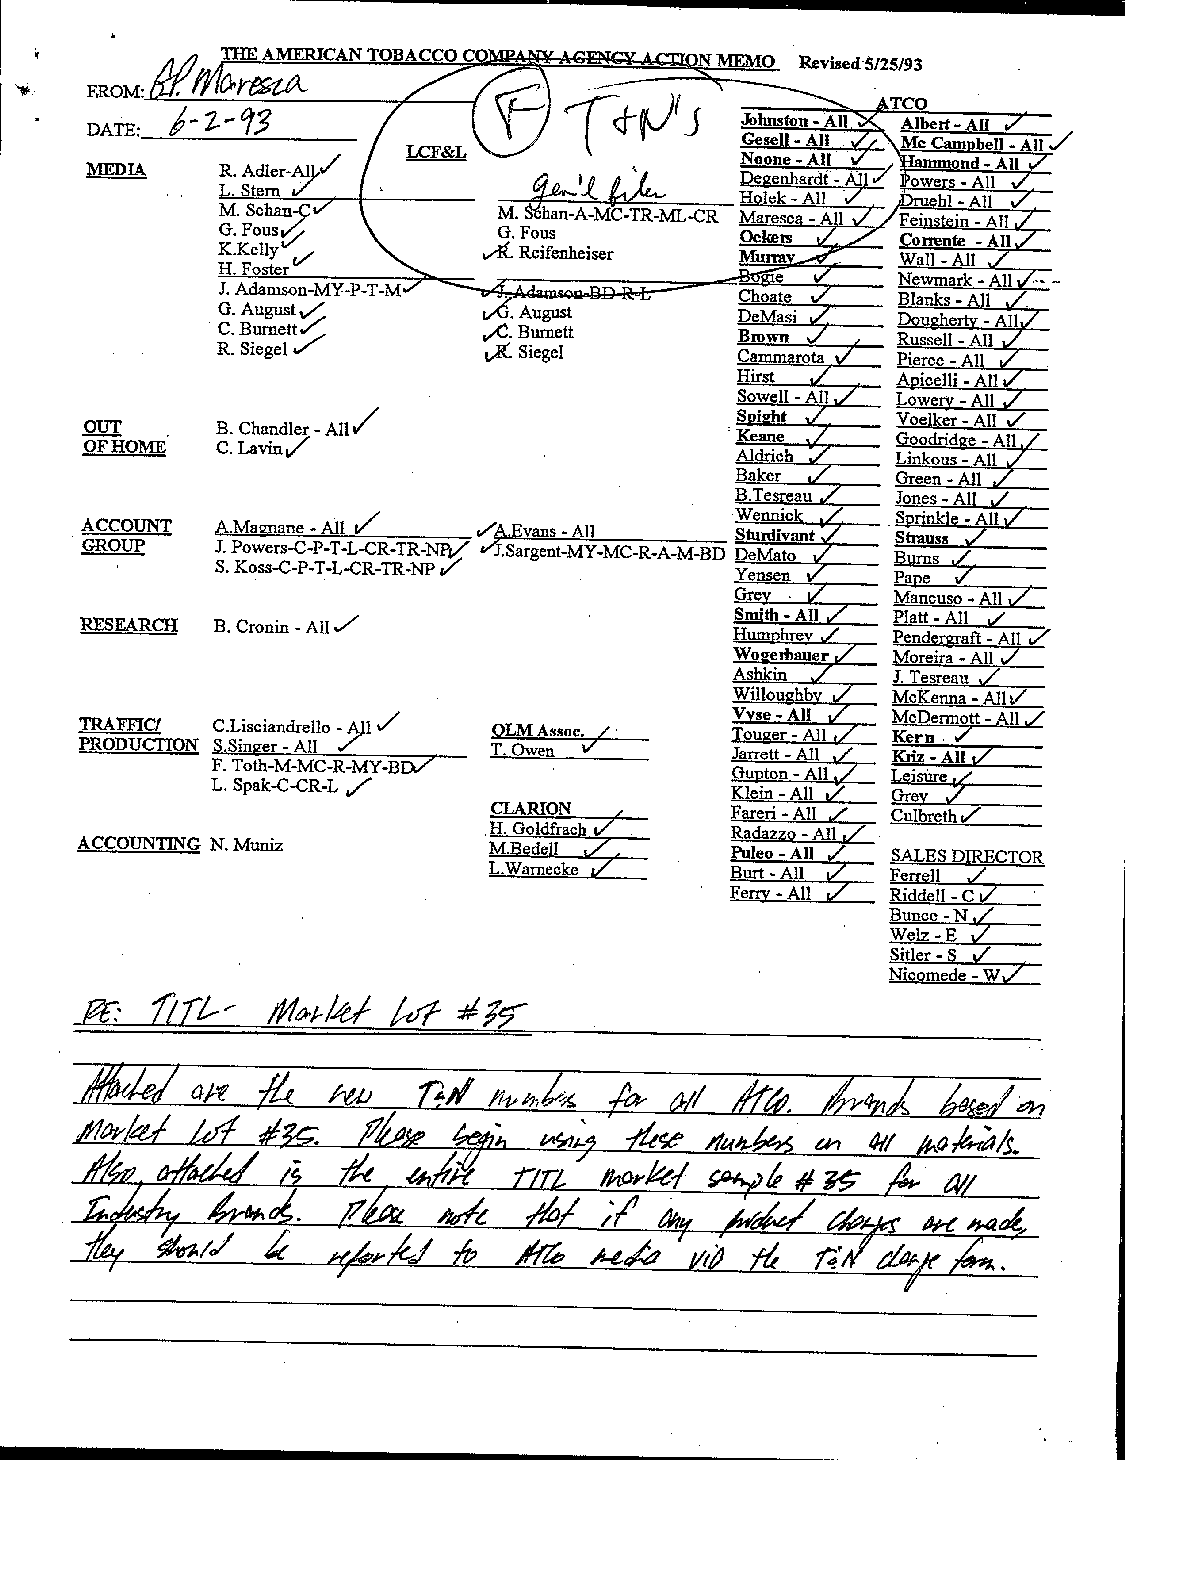 THE AMERICAN TOBACCO COMPANY AGENCY ACTION MEMO Revised 5/25/93
FROM: Maresca
DATE: 6-2-93
F T&N's
gen'l files
LCF&L
MEDIA
R. Adler-All ✓
L. Stern ✓
M. Schan-C ✓
G. Fous ✓
K.Kelly ✓
H. Foster
J. Adamson-MY-P-T-M ✓
G. August ✓
C. Burnett ✓
R. Siegel ✓
M. Schan-A-MC-TR-ML-CR
G. Fous
✓ K. Reifenheiser
✓ J. Adamson-BD-R-L
✓ G. August
✓ C. Burnett
✓ R. Siegel
OUT
OF HOME
B. Chandler - All ✓
C. Lavin ✓
ACCOUNT
GROUP
A.Magnane - All ✓
J. Powers-C-P-T-L-CR-TR-NP ✓
S. Koss-C-P-T-L-CR-TR-NP ✓
✓ A.Evans - All
✓ J.Sargent-MY-MC-R-A-M-BD
RESEARCH
B. Cronin - All ✓
TRAFFIC/
PRODUCTION
C.Lisciandrello - All ✓
S.Singer - All ✓
F. Toth-M-MC-R-MY-BD ✓
L. Spak-C-CR-L ✓
OLM Assoc. ✓
T. Owen ✓
CLARION
H. Goldfrach ✓
M.Bedell ✓
L.Warnecke ✓
ACCOUNTING N. Muniz
ATCO
Johnston - All ✓
Gesell - All ✓
Noone - All ✓
Degenhardt - All ✓
Holek - All ✓
Maresca - All ✓
Ockers ✓
Murray ✓
Bogie ✓
Choate ✓
DeMasi ✓
Brown ✓
Cammarota ✓
Hirst ✓
Sowell - All ✓
Spight ✓
Keane ✓
Aldrich ✓
Baker ✓
B.Tesreau ✓
Wennick ✓
Sturdivant ✓
DeMato ✓
Yensen ✓
Grey ✓
Smith - All ✓
Humphrey ✓
Wogerbauer ✓
Ashkin ✓
Willoughby ✓
Vyse - All ✓
Touger - All ✓
Jarrett - All ✓
Gupton - All ✓
Klein - All ✓
Fareri - All ✓
Radazzo - All ✓
Puleo - All ✓
Burt - All ✓
Ferry - All ✓
Albert - All ✓
Mc Campbell - All ✓
Hammond - All ✓
Powers - All ✓
Druehl - All ✓
Feinstein - All ✓
Corrente - All ✓
Wall - All ✓
Newmark - All ✓
Blanks - All ✓
Dougherty - All ✓
Russell - All ✓
Pierce - All ✓
Apicelli - All ✓
Lowery - All ✓
Voelker - All ✓
Goodridge - All ✓
Linkous - All ✓
Green - All ✓
Jones - All ✓
Sprinkle - All ✓
Strauss ✓
Burns ✓
Pape ✓
Mancuso - All ✓
Platt - All ✓
Pendergraft - All ✓
Moreira - All ✓
J. Tesreau ✓
McKenna - All ✓
McDermott - All ✓
Kern ✓
Kriz - All ✓
Leisure ✓
Grey ✓
Culbreth ✓
SALES DIRECTOR
Ferrell ✓
Riddell - C ✓
Bunce - N ✓
Welz - E ✓
Sitler - S ✓
Nicomede - W ✓
RE: TITL - Market Lot #35
Attached are the new T&N numbers for all ATCo. Brands based on
Market Lot #35. Please begin using these numbers on all materials.
Also, attached is the entire TITL market sample #35 for all
Industry Brands. Please note that if any product changes are made,
they should be reported to ATCo media via the T&N change form.